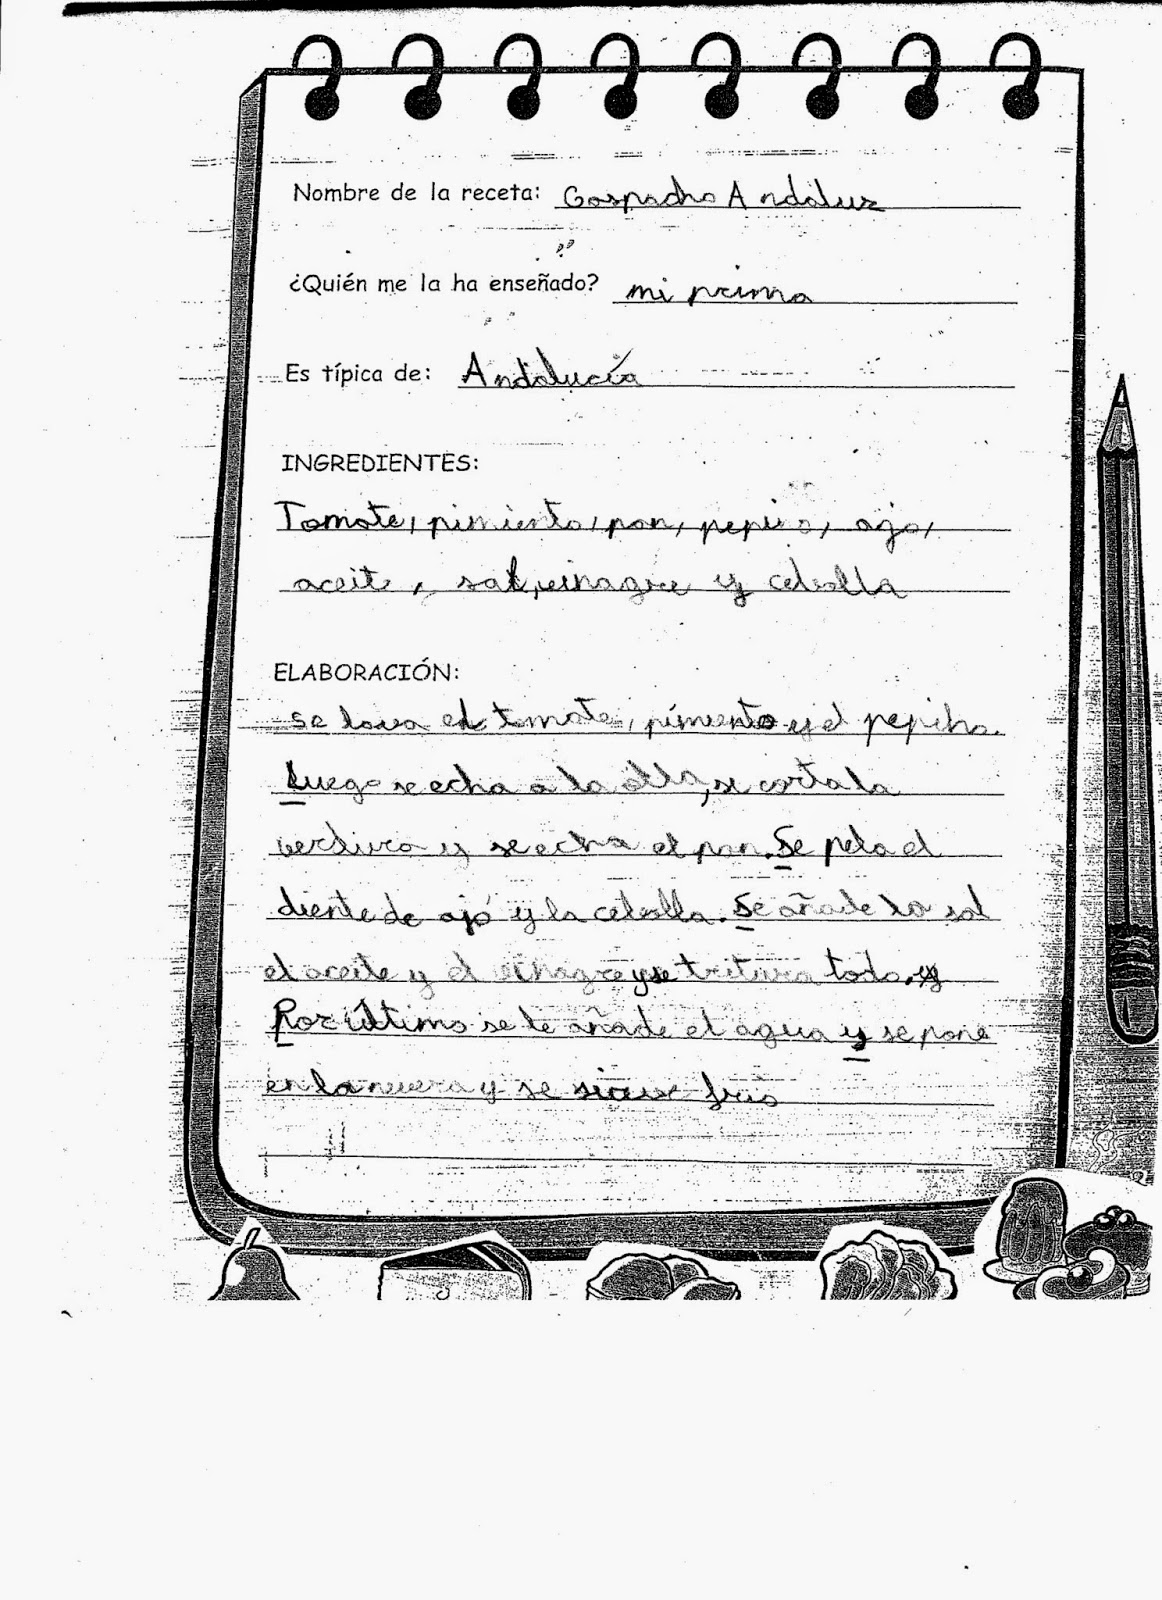 Nombre de la receta: Gaspacho Andaluz
¿Quién me la ha enseñado? mi prima
Es típica de: Andalucía
INGREDIENTES:
Tomate, pimiento, pan, pepino, ajo,
aceite, sal, vinagre y cebolla
ELABORACIÓN:
se lava el tomate, pimiento y el pepino.
Luego se echa a la olla, se corta la
verdura y se echa el pan. Se pela el
diente de ajo y la cebolla. Se añade la sal
el aceite y el vinagre y se tritura todo. y
Por último se le añade el agua y se pone
en la nevera y se sirve frio